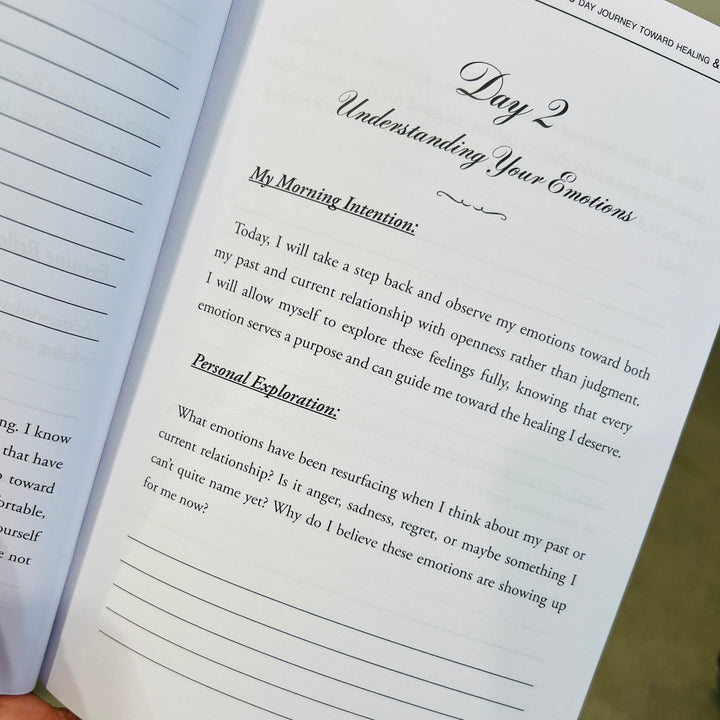 ng. I know
that have
toward
ortable,
ourself
not
DAY JOURNEY TOWARD HEALING &
Day 2
Understanding Your Emotions
My Morning Intention:
Today, I will take a step back and observe my emotions toward both
my past and current relationship with openness rather than judgment.
I will allow myself to explore these feelings fully, knowing that every
emotion serves a purpose and can guide me toward the healing I deserve.
Personal Exploration:
What emotions have been resurfacing when I think about my past or
current relationship? Is it anger, sadness, regret, or maybe something I
can't quite name yet? Why do I believe these emotions are showing up
for me now?